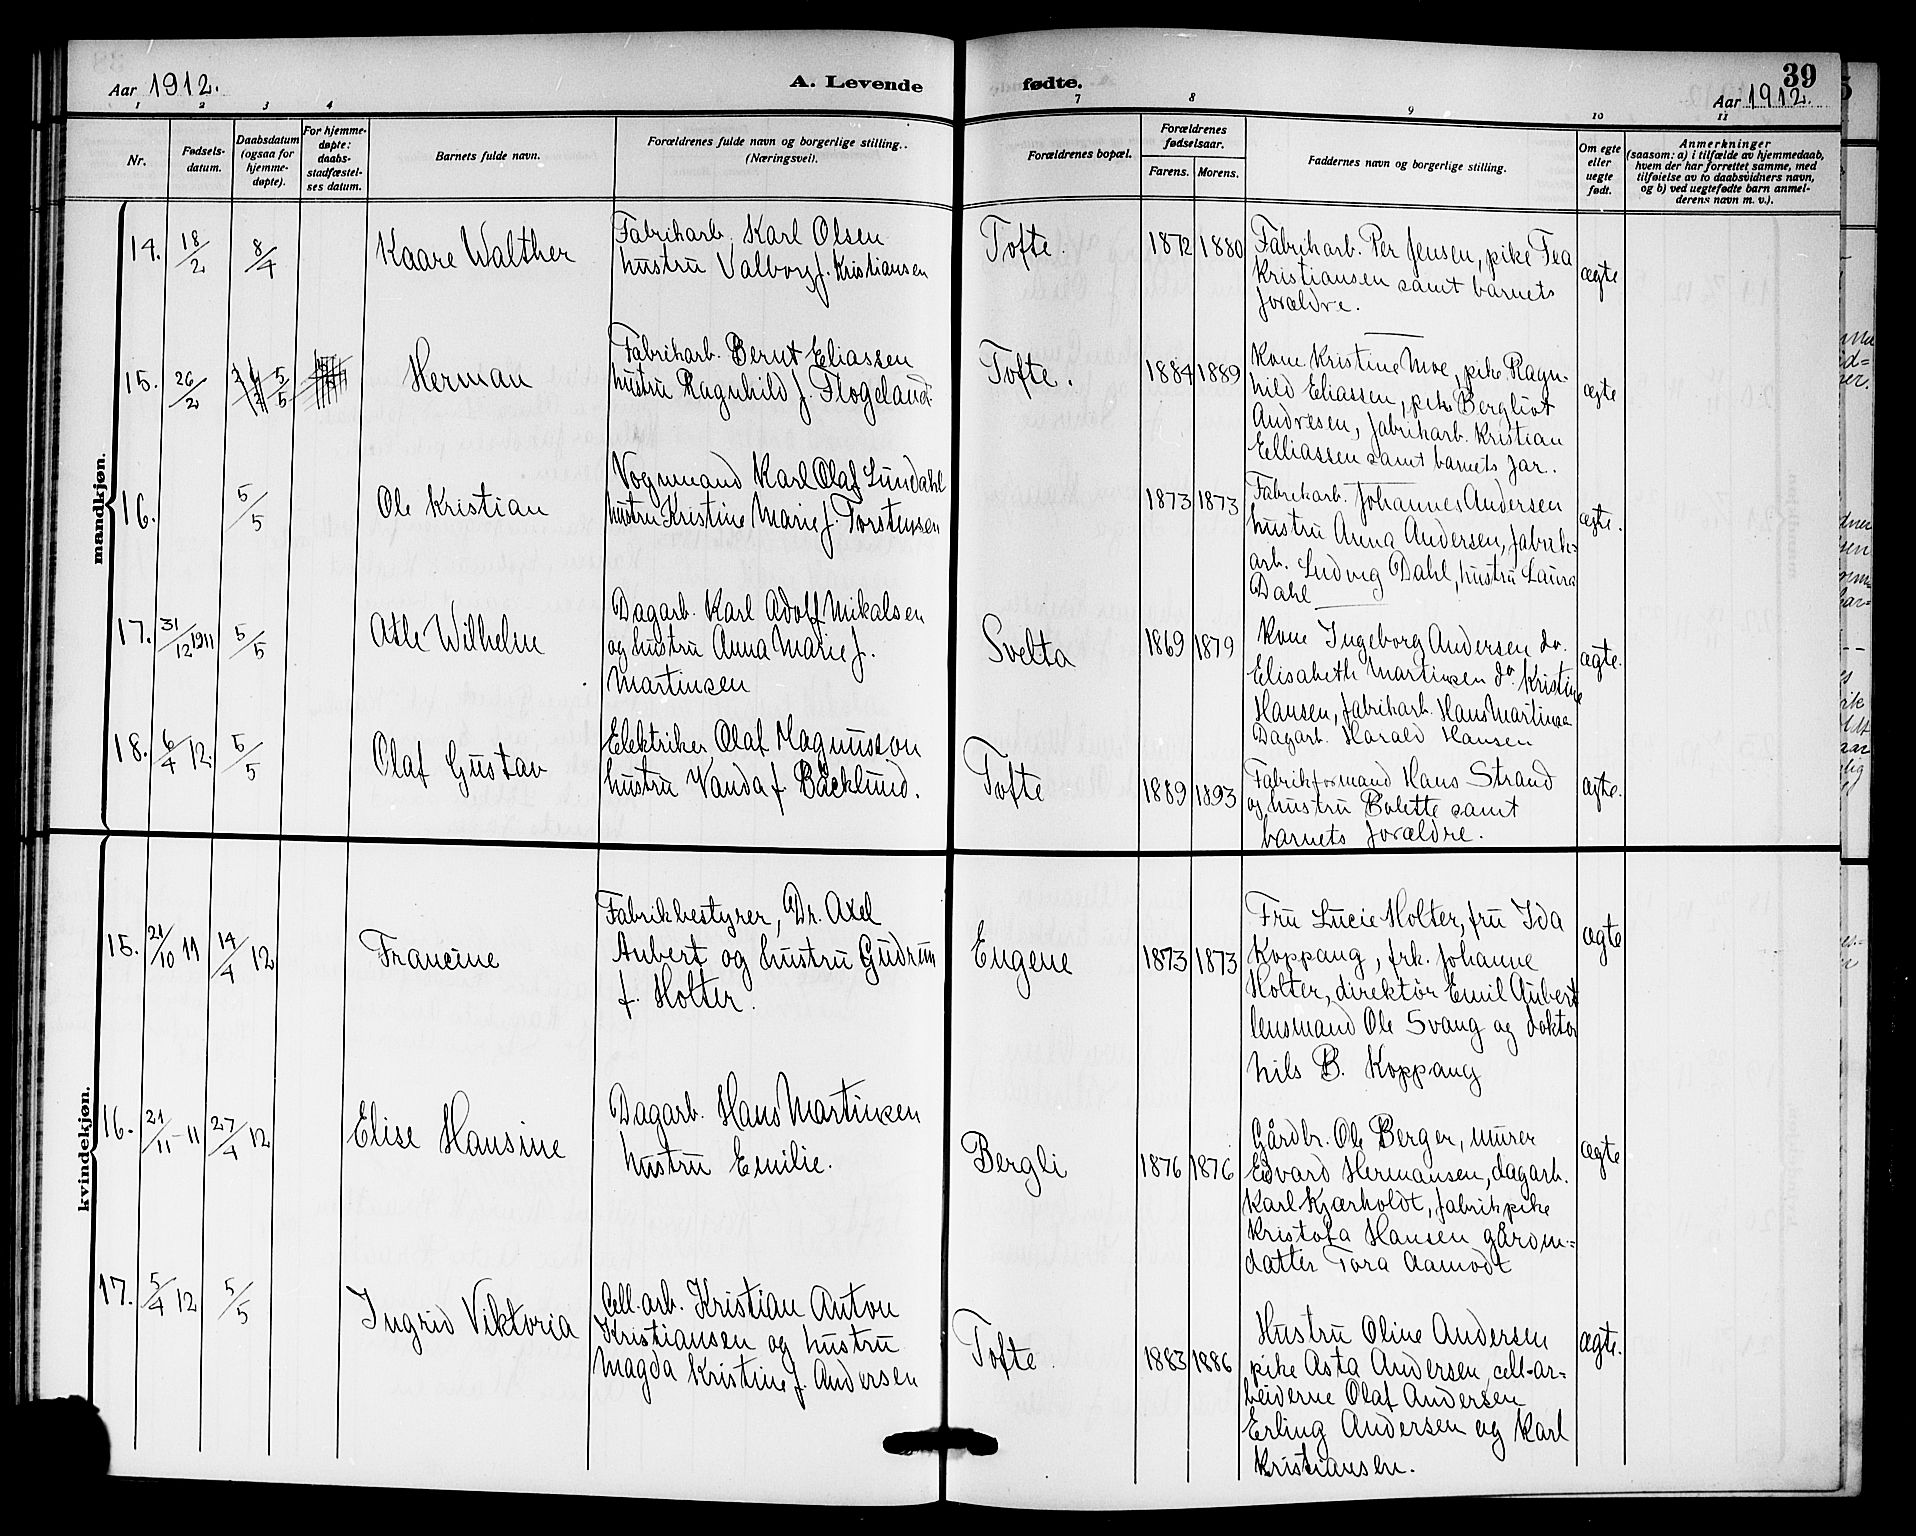 Aar 1912.
A. Levende
fødte.
39
Aar 1912.
1 2 3 4
7 8 9 10 11
Nr.
Fødsels-
datum.
Daabsdatum
(ogsaa for
hjemme-
døpte).
For hjemme-
døpte:
daabs-
stadfæstel-
ses datum.
Barnets fulde navn.
Forældrenes fulde navn og borgerlige stilling.
(Næringsvei).
Forældrenes bopæl.
Forældrenes
fødselsaar.
Farens. Morens.
Faddernes navn og borgerlige stilling.
Om egte
eller
uegte
født.
Anmerkninger
(saasom: a) i tilfælde av hjemmedaab,
hvem der har forrettet samme, med
tilføielse av to daabsvidners navn,
og b) ved uegtefødte barn anmel-
derens navn m. v.).
mandkjøn.
14. 18/2 8/4 Kaare Walther
Fabrikarb. Karl Olsen
hustru Valborg f. Kristiansen
Tofte. 1872 1880
Fabrikarb. Per Jensen, pike Tea
Kristiansen samt barnets
forældre.
ægte
15. 26/2 5/5 Herman
Fabrikarb. Bernt Eliassen
hustru Ragnhild f. Flogeland
Tofte. 1884 1889
Kone Kristine Moe, pike Ragn-
hild Eliassen, pike Bergliot
Andresen, fabrikarb. Kristian
Elliassen samt barnets far.
ægte
16. 5/5 Ole Kristian
Vognmand Karl Olaf Lundahl
hustru Kristine Marie f. Torstensen
1873 1873
Fabrikarb. Johannes Andersen
hustru Anna Andersen, fabrik-
arb. Ludvig Dahl, hustru Laura
Dahl
ægte.
17. 31/12 1911 5/5 Atle Wilhelm
Dagarb. Karl Adolf Mikalsen
og hustru Anna Marie f.
Martinsen
Svelta 1869 1879
Kone Ingeborg Andersen do.
Elisabeth Martinsen do. Kristine
Hansen, fabrikarb. Hans Martinsen
Dagarb. Harald Hansen
ægte.
18. 6/4 12. 5/5 Olaf Gustav
Elektriker Olaf Magnusson
hustru Vanda f. Bäcklund.
Tofte 1889 1893
Fabrikformand Hans Strand
og hustru Bolette samt
barnets forældre.
ægte.
kvindekjøn.
15. 21/10 11 14/4 12 Francine
Fabrikbestyrer, Dr. Axel
Aubert og hustru Gudrun
f. Holter.
Eugene 1873 1873
Fru Lucie Holter, fru Ida
Koppang, frk. Johanne
Holter, direktör Emil Aubert
lensmand Ole Svang og doktor
Nils B. Koppang
ægte
16. 21/11-11 27/4 12 Elise Hansine
Dagarb. Hans Martinsen
hustru Emilie.
Bergli 1876 1876
Gårdbr. Ole Berger, murer
Edvard Hermansen, dagarb.
Karl Kjærholdt, fabrikpike
Kristofa Hansen gårdm-
datter Tora Aamodt
ægte
17. 5/4 12 5/5 Ingrid Viktoria
Cell. arb. Kristian Anton
Kristiansen og hustru
Magda Kristine f. Andersen
Tofte 1883 1886
Hustru Oline Andersen
pike Asta Andersen, cell-ar-
beiderne Olaf Andersen
Erling Andersen og Karl
Kristiansen.
ægte.